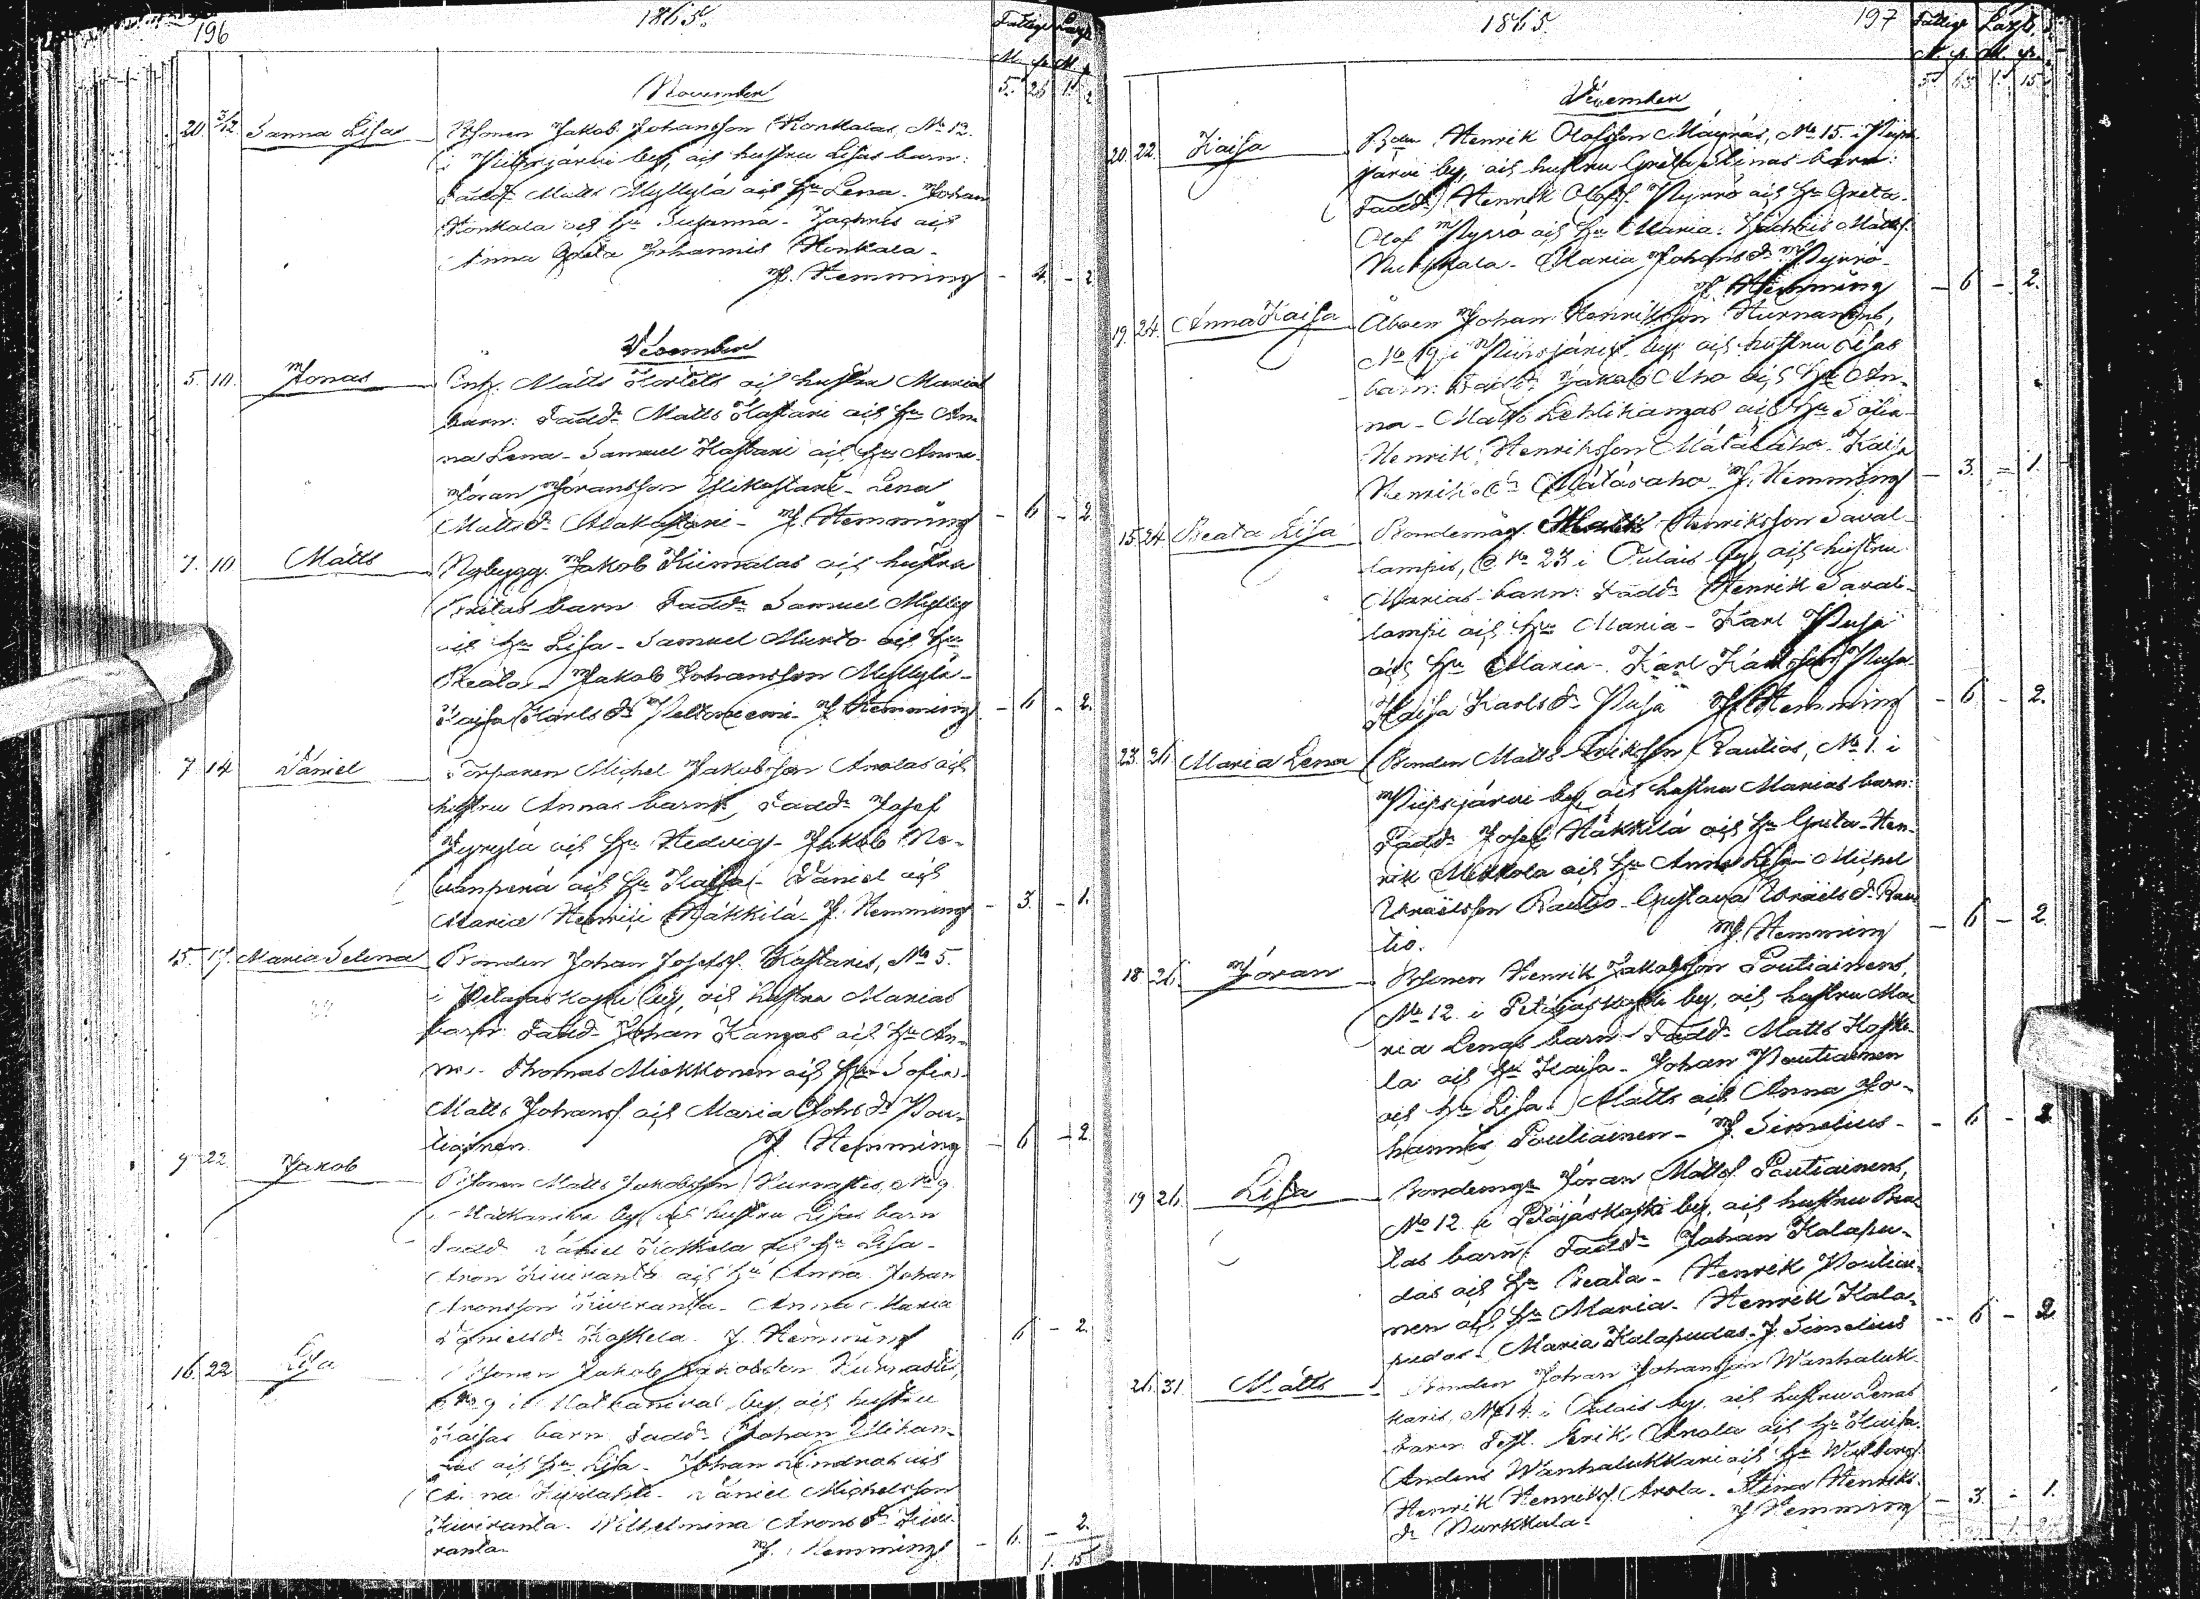 196
1865.
Fattige Lazt.
M. p. M. p.
5. 26 1. 2
November
20 3/12 Sanna Lisa Bonden Jakob Johansson Honkalas, No 12.
i Piipsjärvi by, och hustru Lisas barn:
Fadd. Matts Myllylä och hu Lena - Johan
Honkala och hu Susanna - Zachris och
Anna Greta Johannis Honkala -
J. Hemming - 4. - 2
December
5. 10. Jonas Matts och hustru Marias
barn: Faddr Matts Hastari och hu An-
na Lena - Samuel Hastari och hu Anna -
Jöran Jöransson Ylikastari - Lena
Matts dr Alakastari - J. Hemming - 6 - 2.
7. 10 Matts Nybygg. Jakob Kiimalas och hustru
barn Faddr Samuel
och hu Lisa - Samuel Murto och hu
Beata - Jakob Johansson Myllylä -
Kajsa Karls dr Peltoniemi - J. Hemming - 6 - 2.
7 14 Daniel Torparen Michel Jakobsson Anolas och
hustru Annas barn, Faddr Josef
Kyrylä och hu Hedvig - Jakob Ne-
vanperä och hu Kajsa - Daniel och
Maria Henrici Häkkilä - J. Hemming - 3. - 1.
15. 17. Maria Selena Bonden Johan Josefss. Kastaris, No 5.
i Petäjäskoski by, och hustru Marias
barn: Fadd. Johan Kangas och hu An-
na - Thomas Miekkonen och hu Sofia -
Matts Johanss. och Maria Johs dr Pou-
tiainen. J. Hemming - 6 - 2.
9 22. Jakob Bonden Matts Jakobsson Kurrastis, No 9
i Matkaniva by och hustru Lisas barn
Fadd. Daniel Koskela och hu Lisa -
Aron Kiviranta och hu Anna. Johan
Aronsson Kiviranta - Anna Maria
Daniels dr Koskela. J. Hemming 6 - 2.
16. 22 Lisa Bonden Jakob Jakobsson Kurrastis,
No 9 i Matkanivas by, och hustru
Kajsas barn Faddr Johan
och hu Lisa - Johan och
Anna - Daniel Michelsson
Kiviranta - Wilhelmina Arons dr Kivi-
ranta. J. Hemming - 6. - 2.
1. 15
1865.
197 Fattige Lazt.
M. p. M. p.
5. 63 1. 15
December
20. 22. Kaisa Bon. Henrik Olofsson Mäyräs, No 15. i Piips-
järvi by, och hustru Greta Stinas barn:
Faddr Henrik Olofs. Pyrrö och hu Greta.
Olof Pyrrö och hu Maria. Zachris Mattss.
- Maria Johans dr Pyrrö -
J. Hemming - 6 - 2.
19. 24. Anna Kaisa Åboen Johan Henriksson
No 19 i Piipsjärvi by och hustru Lisas
barn: Faddr Jakob Aho och hu An-
na - Matts Lehtikangas och hu Sofia -
Henrik Henriksson Määtäaho - Kaisa
Henriks dr Määtäaho - J. Hemming - 3. - 1.
15. 24. Beata Lisa Bondemåg. Matts Henriksson Saval-
lampis, No 23 i Oulais by, och hustru
Marias barn: Faddr Henrik Saval-
lampi och hu Maria - Karl Pusa
och hu Maria - Karl Karlsson Pusa
Kaisa Karls dr Pusa J. Hemming - 6 - 2.
23. 26. Maria Lena Bonden Matts Eriksson Rautios, No 1. i
Piipsjärvi by, och hustru Marias barn:
Faddr Josef Häkkilä och hu Greta - Hen-
rik Mekkola och hu Anna Lisa - Michel
Israelsson Rautio - Gustava Israels dr Rau-
tio. J. Hemming - 6 - 2
18. 26. Jöran Bonden Henrik Jakobsson Poutiainens,
No 12. i Petäjäskoski by, och hustru Ma-
ria Lenas barn: Faddr Matts Koske-
la och hu Kaisa - Johan Poutiainen
och hu Lisa - Matts och Anna Jo-
hannis Poutiainen - J. Simelius - - 6 - 2
19 26. Lisa Bondemg Jöran Mattss. Poutiainens,
No 12 i Petäjäskoski by, och hustru Bea-
tas barn: Faddr Johan Kalapu-
das och hu Beata - Henrik Poutiai-
nen och hu Maria - Henrik Kala-
pudas - Maria Kalapudas - J. Simelius - 6 - 2
26. 31. Matts Bonden Johan Johansson Wanhaluk-
karis, No 14. i Oulais by, och hustru Lenas
barn Test. Erik Anola och hu Kaisa.
Anders Wanhalukkari och hu Walborg
Henrik Henrikss. Arola - Stina Henriks
dr Purkkala - J. Hemming - 3. - 1.